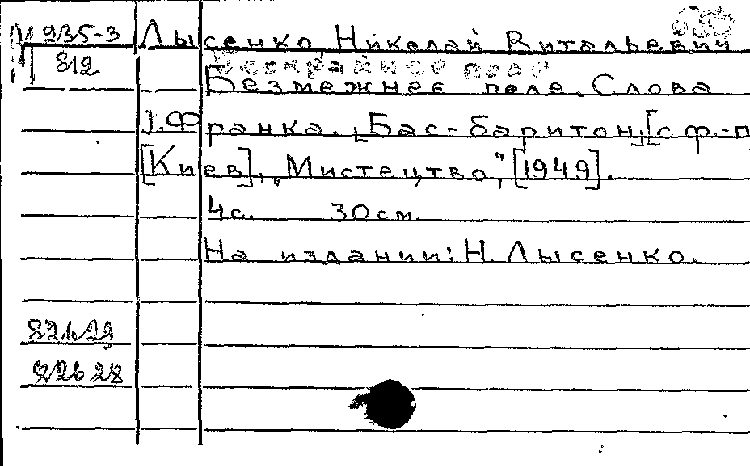 М 935-3
812
Лысенко, Николай Витальевич
Безмежнее поле. Слова
І. Франка. [Бас-баритон] [с ф.-п
[Киев], "Мистецтво," [1949].
4с. 30см.
На издании: Н. Лысенко.
82628